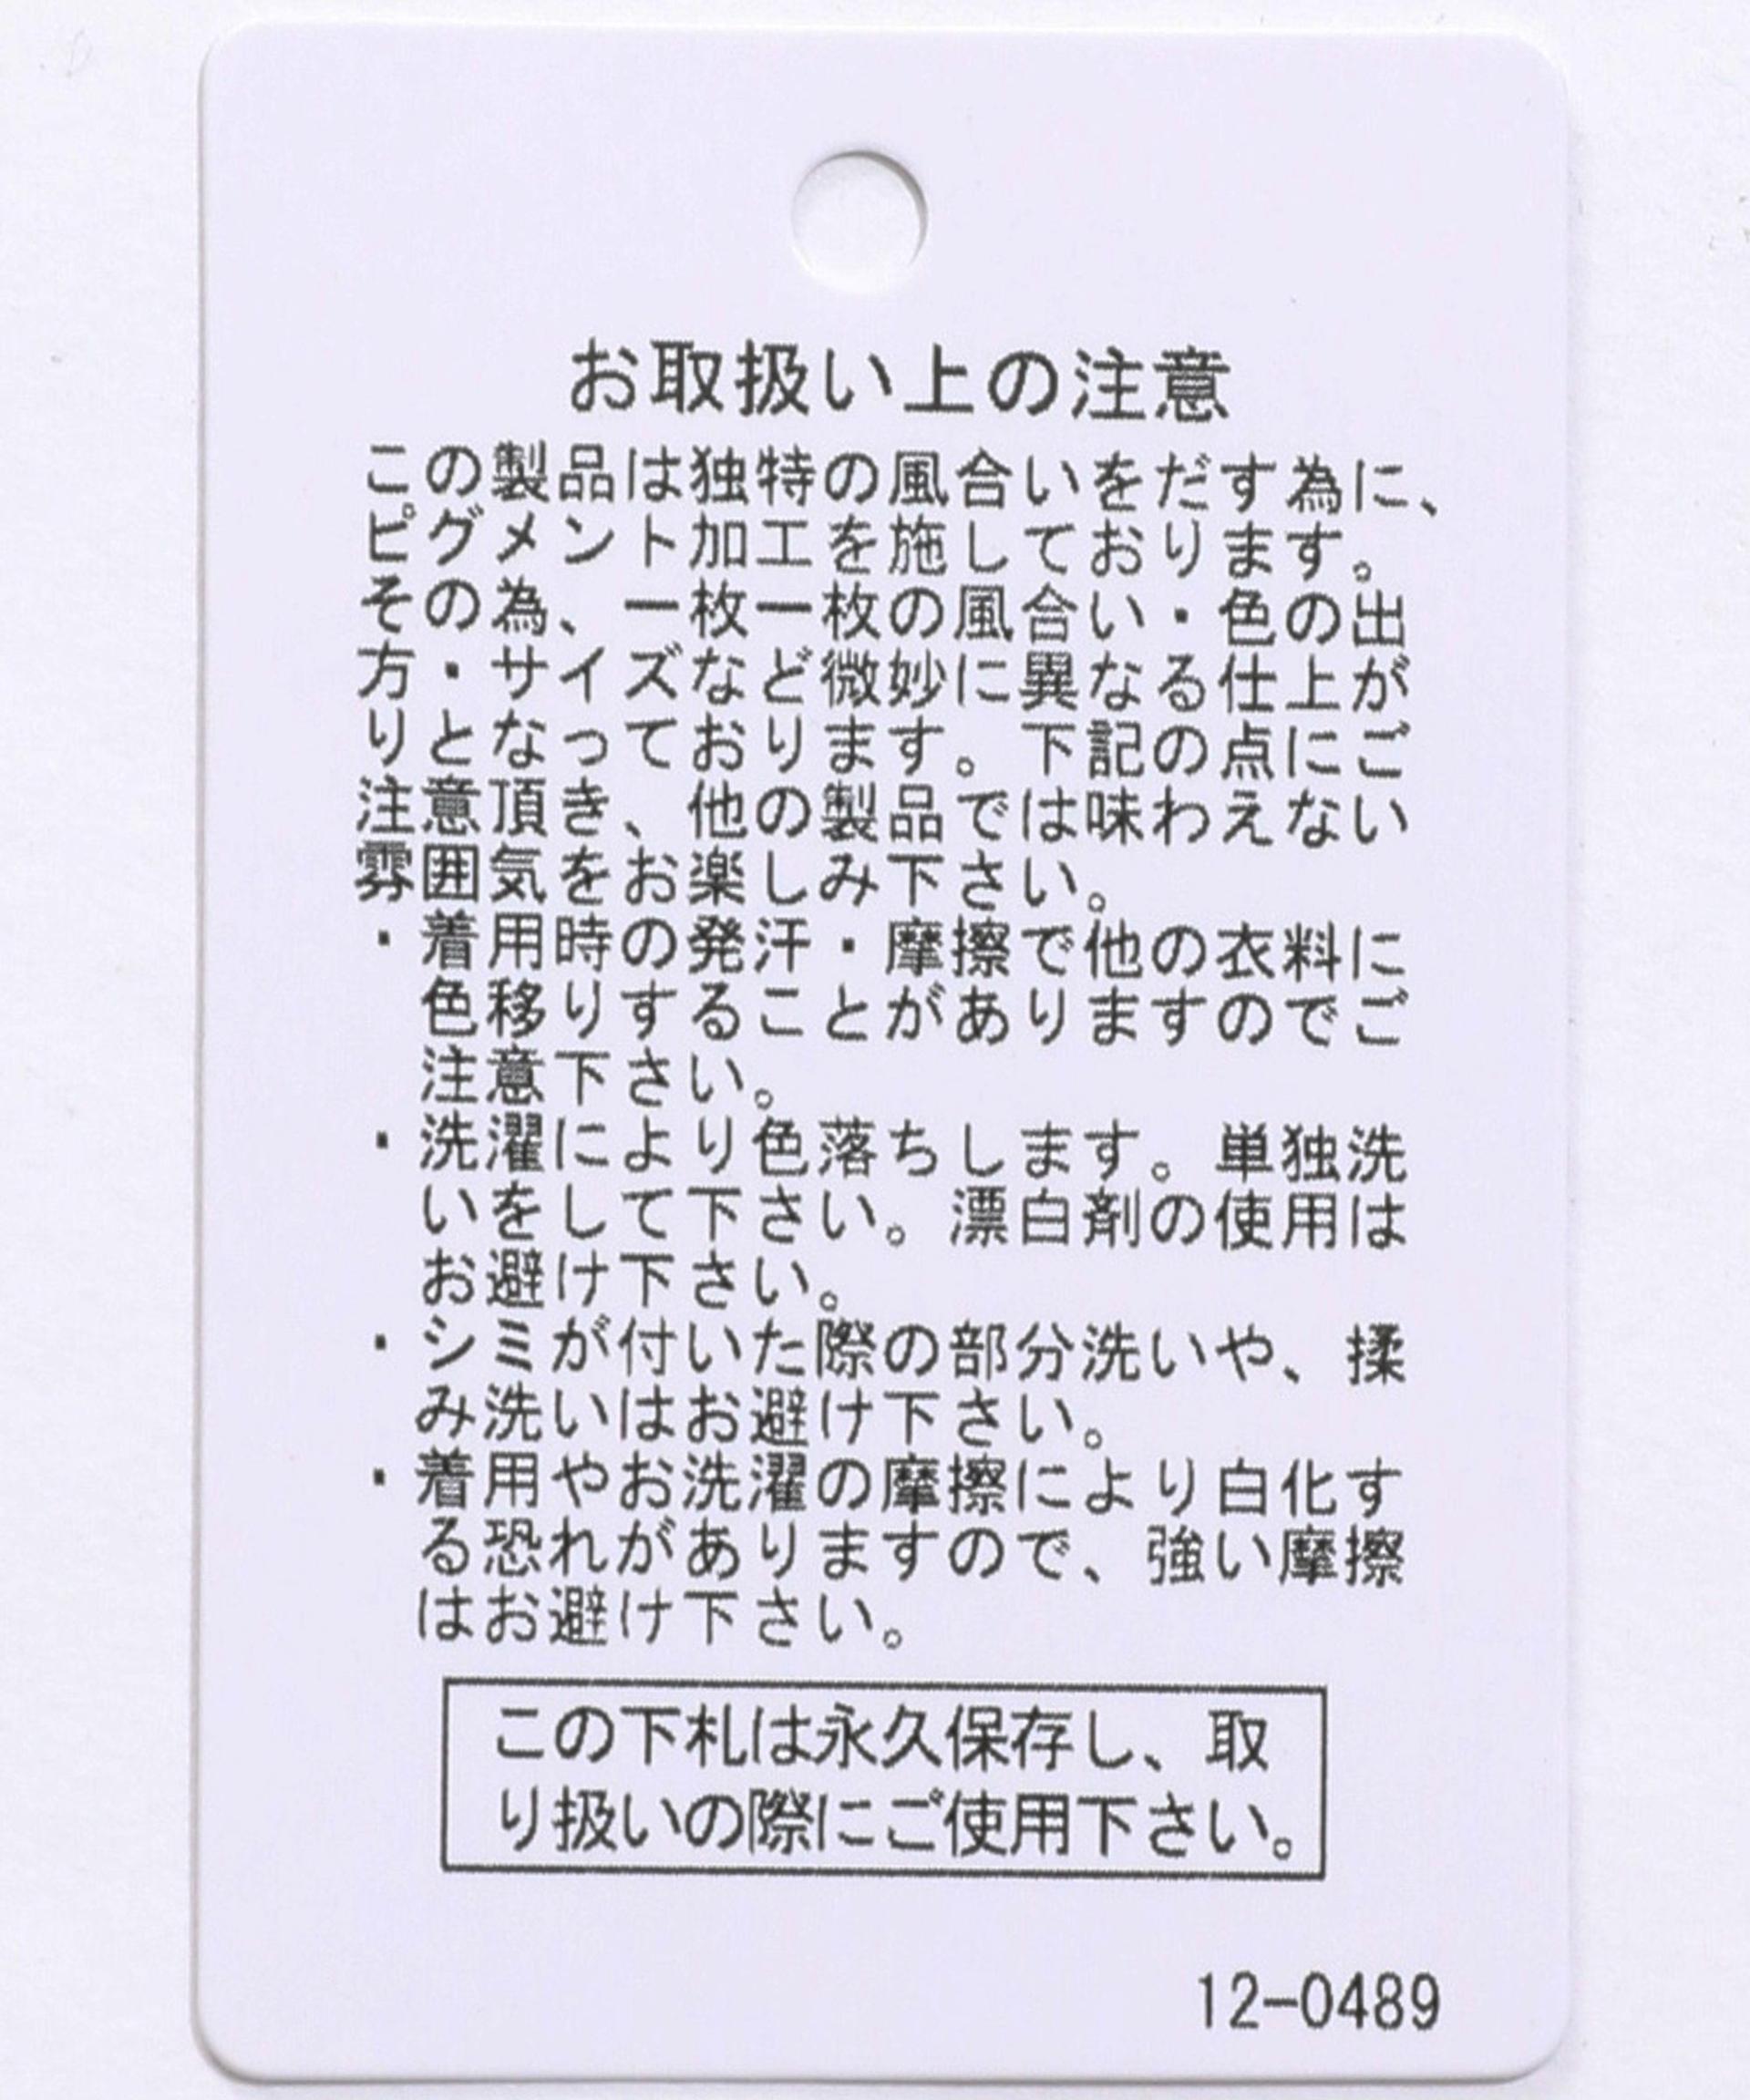 お取扱い上の注意
この製品は独特の風合いをだす為に、
ピグメント加工を施しております。
その為、一枚一枚の風合い・色の出
方・サイズなど微妙に異なる仕上が
りとなっております。下記の点にご
注意頂き、他の製品では味わえない
雰囲気をお楽しみ下さい。
・着用時の発汗・摩擦で他の衣料に
色移りすることがありますのでご
注意下さい。
・洗濯により色落ちします。単独洗
いをして下さい。漂白剤の使用は
お避け下さい。
・シミが付いた際の部分洗いや、揉
み洗いはお避け下さい。
・着用やお洗濯の摩擦により白化す
る恐れがありますので、強い摩擦
はお避け下さい。
この下札は永久保存し、取
り扱いの際にご使用下さい。
12-0489